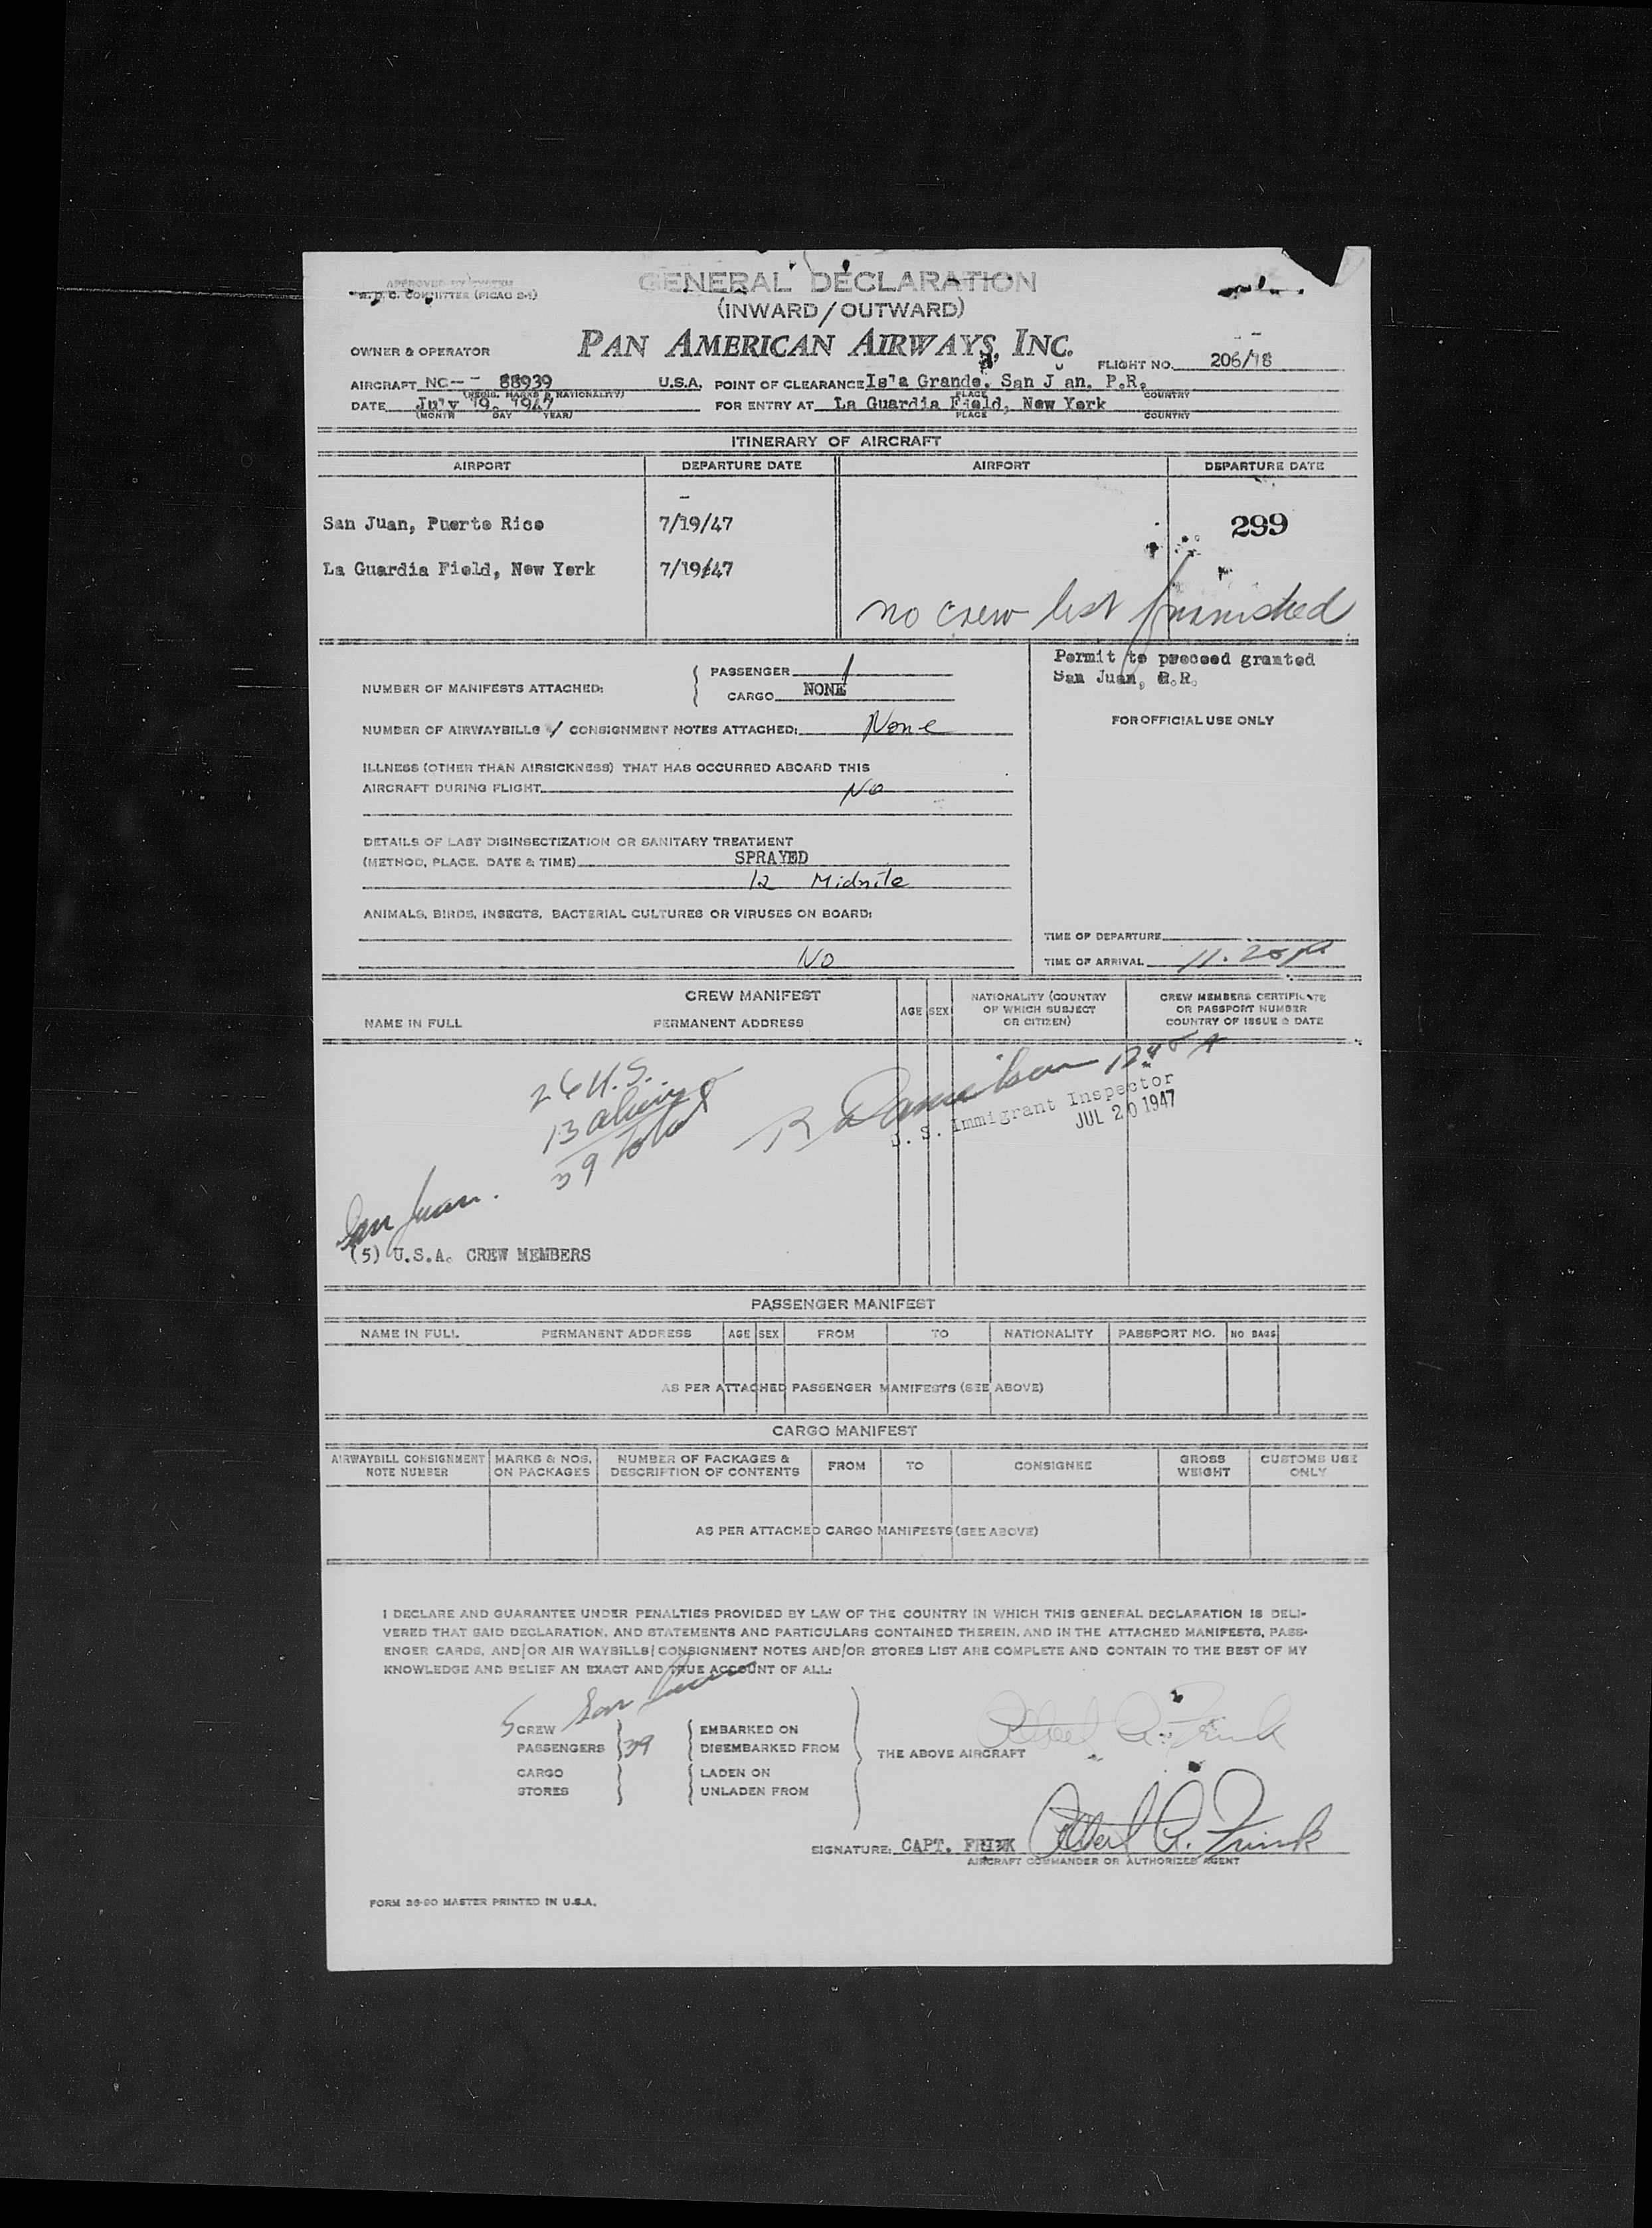 APPROVED BY SYSTEM GENERAL DECLARATION
COMMITTEE (PICAO S-1) (INWARD/OUTWARD)
OWNER & OPERATOR PAN AMERICAN AIRWAYS, INC. FLIGHT NO. 206/18
AIRCRAFT NC-- - 88939 U.S.A. POINT OF CLEARANCE Isla Grande, San J an, P.R.
(REGIS. MARKS & NATIONALITY) PLACE COUNTRY
DATE July 19, 1947 FOR ENTRY AT La Guardia Field, New York
(MONTH DAY YEAR) PLACE COUNTRY
ITINERARY OF AIRCRAFT
AIRPORT DEPARTURE DATE AIRPORT DEPARTURE DATE
San Juan, Puerto Rico 7/19/47 299
La Guardia Field, New York 7/19/47
no crew list furnished
Permit to proceed granted
San Juan, P.R.
NUMBER OF MANIFESTS ATTACHED: PASSENGER 1
CARGO NONE
FOR OFFICIAL USE ONLY
NUMBER OF AIRWAYBILLS / CONSIGNMENT NOTES ATTACHED: None
ILLNESS (OTHER THAN AIRSICKNESS) THAT HAS OCCURRED ABOARD THIS
AIRCRAFT DURING FLIGHT No
DETAILS OF LAST DISINSECTIZATION OR SANITARY TREATMENT
(METHOD, PLACE, DATE & TIME) SPRAYED
12 Midnite
ANIMALS, BIRDS, INSECTS, BACTERIAL CULTURES OR VIRUSES ON BOARD:
No
TIME OF DEPARTURE
TIME OF ARRIVAL 11.25 P
CREW MANIFEST
NAME IN FULL PERMANENT ADDRESS AGE SEX NATIONALITY (COUNTRY OF WHICH SUBJECT OR CITIZEN) CREW MEMBERS CERTIFICATE OR PASSPORT NUMBER COUNTRY OF ISSUE & DATE
26 U.S.
13 aliens
39 Total
R Danielson 1245 A
U. S. Immigrant Inspector
JUL 20 1947
San Juan.
(5) U.S.A. CREW MEMBERS
PASSENGER MANIFEST
NAME IN FULL PERMANENT ADDRESS AGE SEX FROM TO NATIONALITY PASSPORT NO. NO BAGS
AS PER ATTACHED PASSENGER MANIFESTS (SEE ABOVE)
CARGO MANIFEST
AIRWAYBILL CONSIGNMENT NOTE NUMBER MARKS & NOS. ON PACKAGES NUMBER OF PACKAGES & DESCRIPTION OF CONTENTS FROM TO CONSIGNEE GROSS WEIGHT CUSTOMS USE ONLY
AS PER ATTACHED CARGO MANIFESTS (SEE ABOVE)
I DECLARE AND GUARANTEE UNDER PENALTIES PROVIDED BY LAW OF THE COUNTRY IN WHICH THIS GENERAL DECLARATION IS DELI-
VERED THAT SAID DECLARATION, AND STATEMENTS AND PARTICULARS CONTAINED THEREIN, AND IN THE ATTACHED MANIFESTS, PASS-
ENGER CARDS, AND/OR AIR WAYBILLS/CONSIGNMENT NOTES AND/OR STORES LIST ARE COMPLETE AND CONTAIN TO THE BEST OF MY
KNOWLEDGE AND BELIEF AN EXACT AND TRUE ACCOUNT OF ALL:
San Juan
5 CREW EMBARKED ON
PASSENGERS 39 DISEMBARKED FROM THE ABOVE AIRCRAFT Albert A. Frink
CARGO LADEN ON
STORES UNLADEN FROM
SIGNATURE: CAPT. FRINK Albert A. Frink
AIRCRAFT COMMANDER OR AUTHORIZED AGENT
FORM 36-90 MASTER PRINTED IN U.S.A.